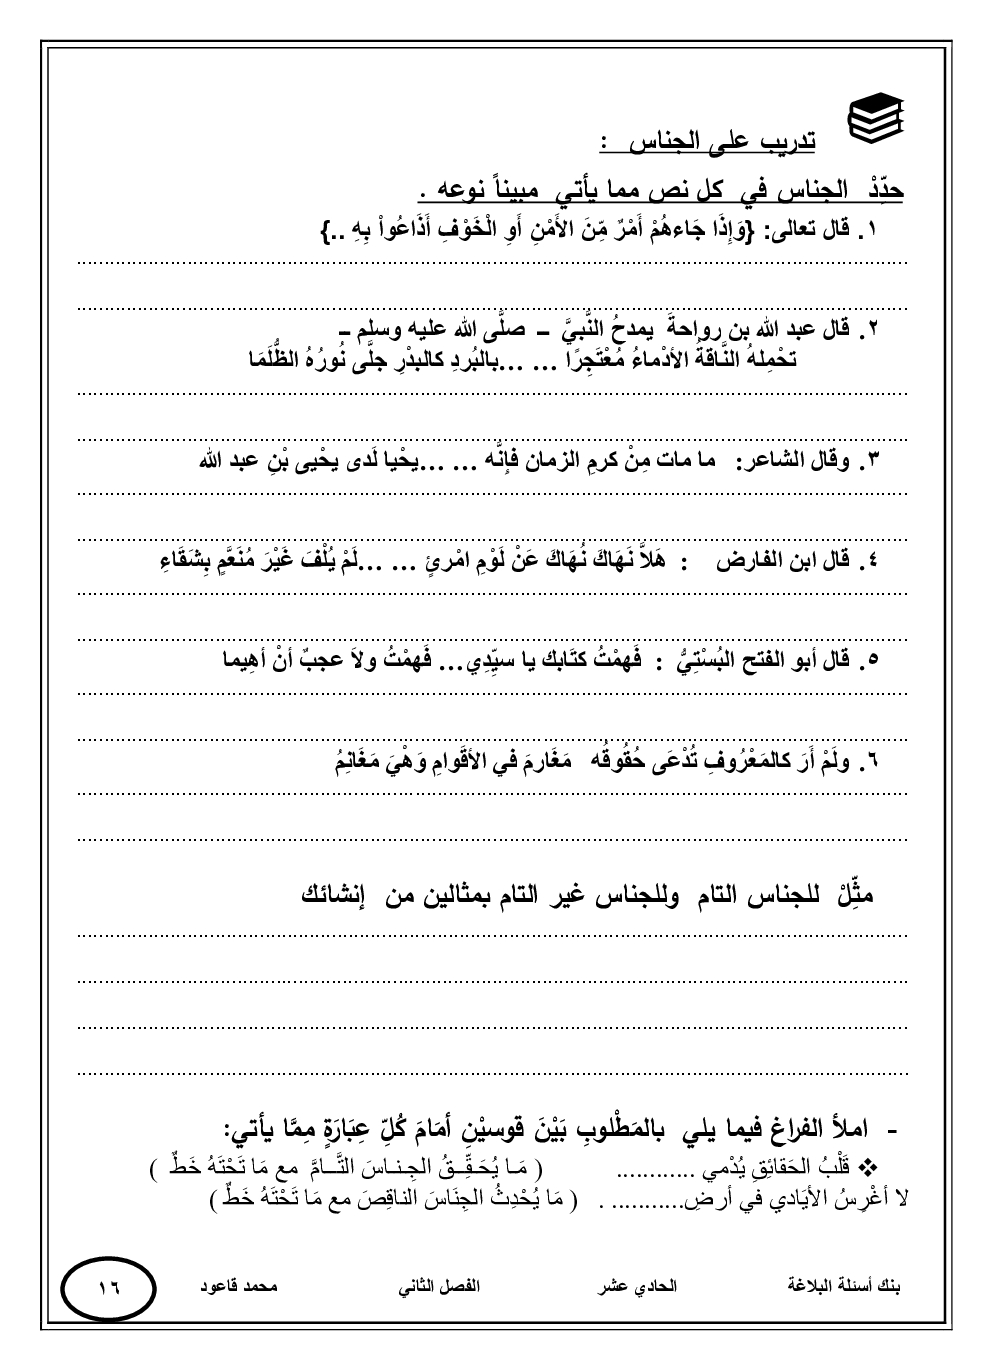 تدريب على الجناس :
حدِّدْ الجناس في كل نص مما يأتي مبيناً نوعه .
١. قال تعالى: {وَإِذَا جَاءهُمْ أَمْرٌ مِّنَ الأَمْنِ أَوِ الْخَوْفِ أَذَاعُواْ بِهِ ..}
٢. قال عبد الله بن رواحةَ يمدحُ النَّبيَّ – صلَّى الله عليه وسلم –
تحْمِلهُ النَّاقةُ الأدْماءُ مُعْتَجِرًا ... ...بالبُردِ كالبدْرِ جلَّى نُورُهُ الظُّلَمَا
٣. وقال الشاعر: ما مات مِنْ كرمِ الزمان فإنَّه ... ...يحْيا لَدى يحْيى بْنِ عبد الله
٤. قال ابن الفارض : هَلاَّ نَهَاكَ نُهَاكَ عَنْ لَوْمِ امْرئٍ ... ...لَمْ يُلْفَ غَيْرَ مُنَعَّمٍ بِشَقَاءِ
٥. قال أبو الفتح البُسْتِيُّ : فَهمْتُ كتَابك يا سيِّدِي... فَهمْتُ ولاَ عجبٌ أنْ أهِيما
٦. ولَمْ أَرَ كالمَعْرُوفِ تُدْعَى حُقُوقُه مَغَارمَ في الأقَوامِ وَهْيَ مَغَانِمُ
مثِّلْ للجناس التام وللجناس غير التام بمثالين من إنشائك
- املأ الفراغ فيما يلي بالمَطْلوبِ بَيْنَ قوسيْنِ أمَامَ كُلِّ عِبَارَةٍ مِمَّا يأتي:
❖ قَلْبُ الحَقائِقِ يُدْمي ............ ( مَـا يُحَـقِّــقُ الجِـنـاسَ التَّــامَّ مع مَا تَحْتَهُ خَطٌ )
لا أغْرِسُ الأيَادي في أرضِ........... . ( مَا يُحْدِثُ الجِنَاسَ الناقِصَ مع مَا تَحْتَهُ خَطٌ )
بنك أسئلة البلاغة الحادي عشر الفصل الثاني محمد قاعود ١٦